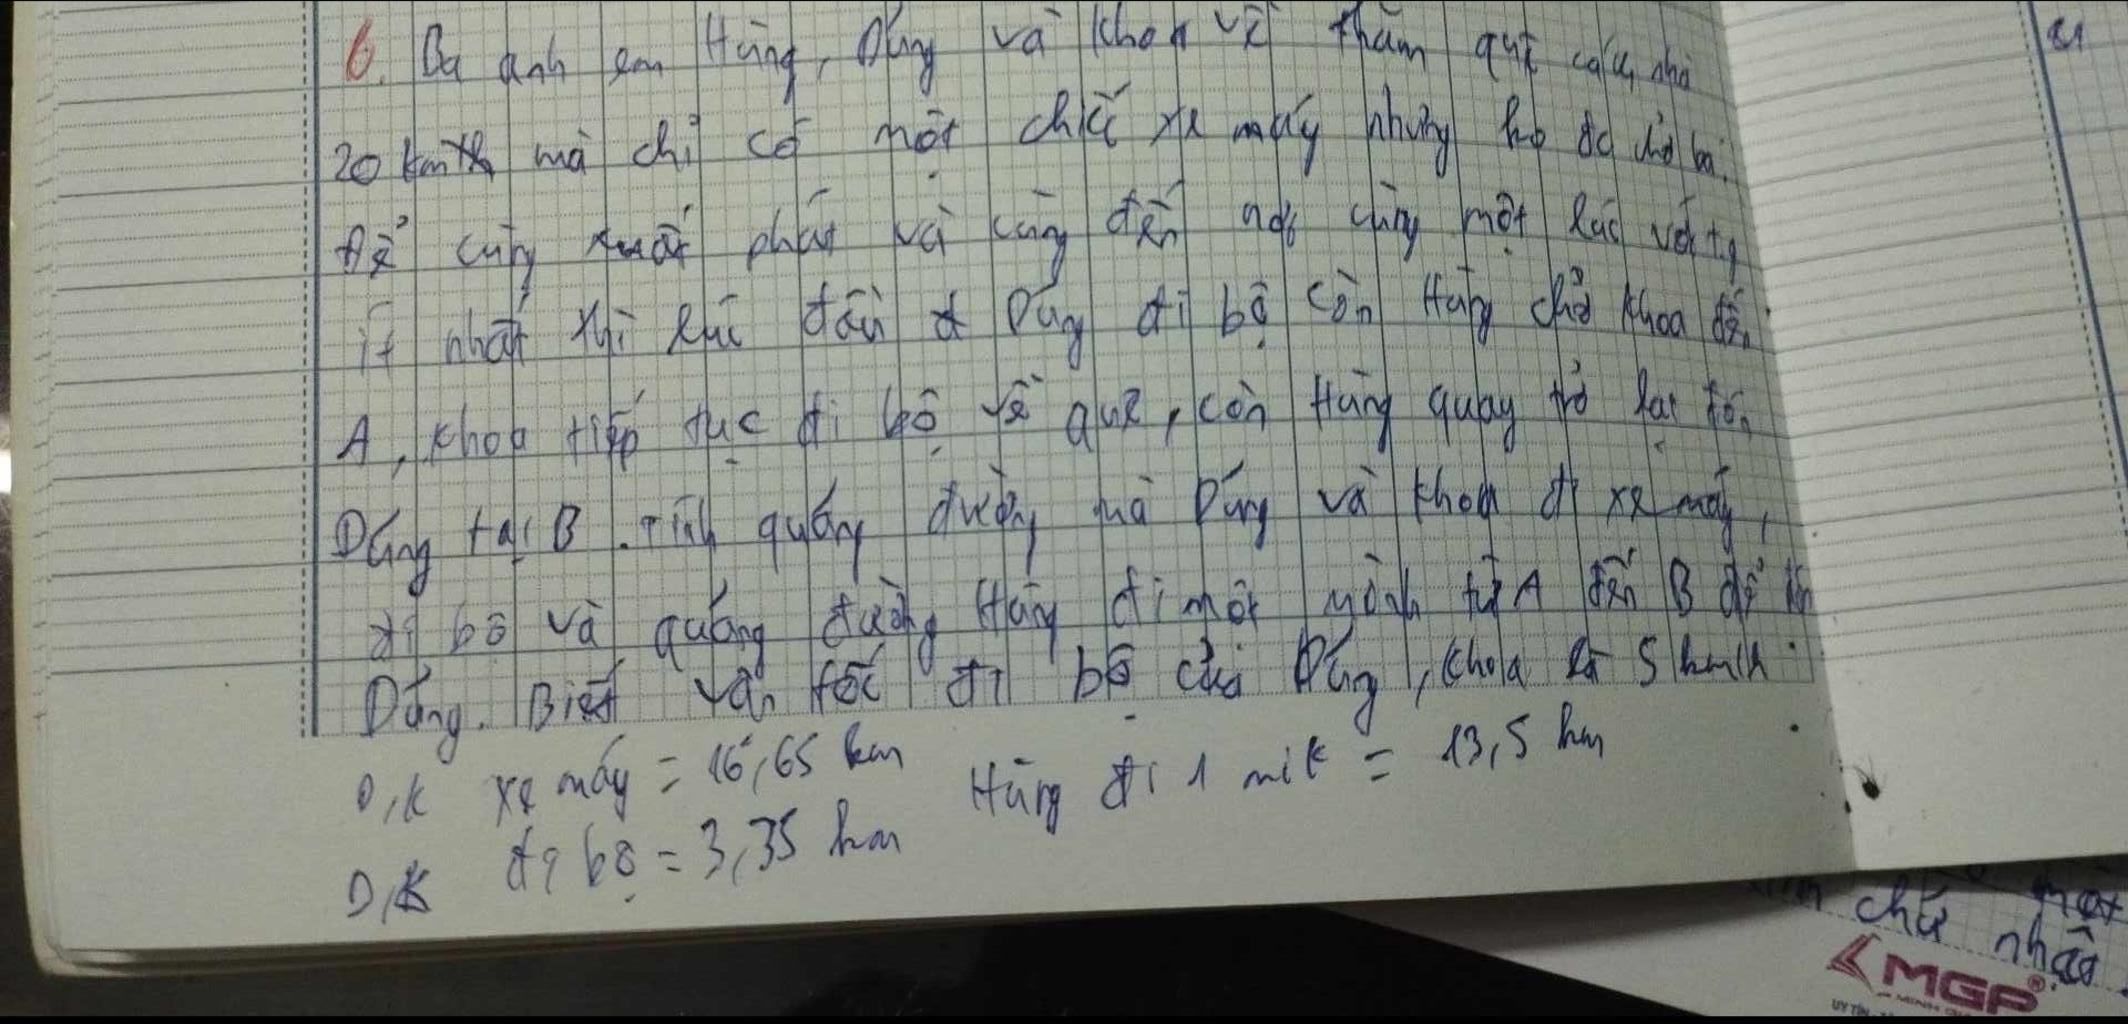 6. Ba anh em Hùng, Dũng và Khoa về thăm quê cách nhà
20 km mà chỉ có một chiếc xe máy nhưng ko đc chở ba.
Để cùng xuất phát và cùng đến nơi cùng một lúc với tg
ít nhất thì lúc đầu Dũng đi bộ còn Hùng chở Khoa đến
A, Khoa tiếp tục đi bộ về quê, còn Hùng quay trở lại đón
Dũng tại B. Tính quãng đường mà Dũng và Khoa đi xe máy,
đi bộ và quãng đường Hùng đi một mình từ A đến B để đón
Dũng. Biết vận tốc đi bộ của Dũng, Khoa là 5 km/h
D,K xe máy = 16,65 km Hùng đi 1 mik = 13,5 km
D,K đi bộ = 3,35 km
chữ nhật
MGP®
UY TÍN